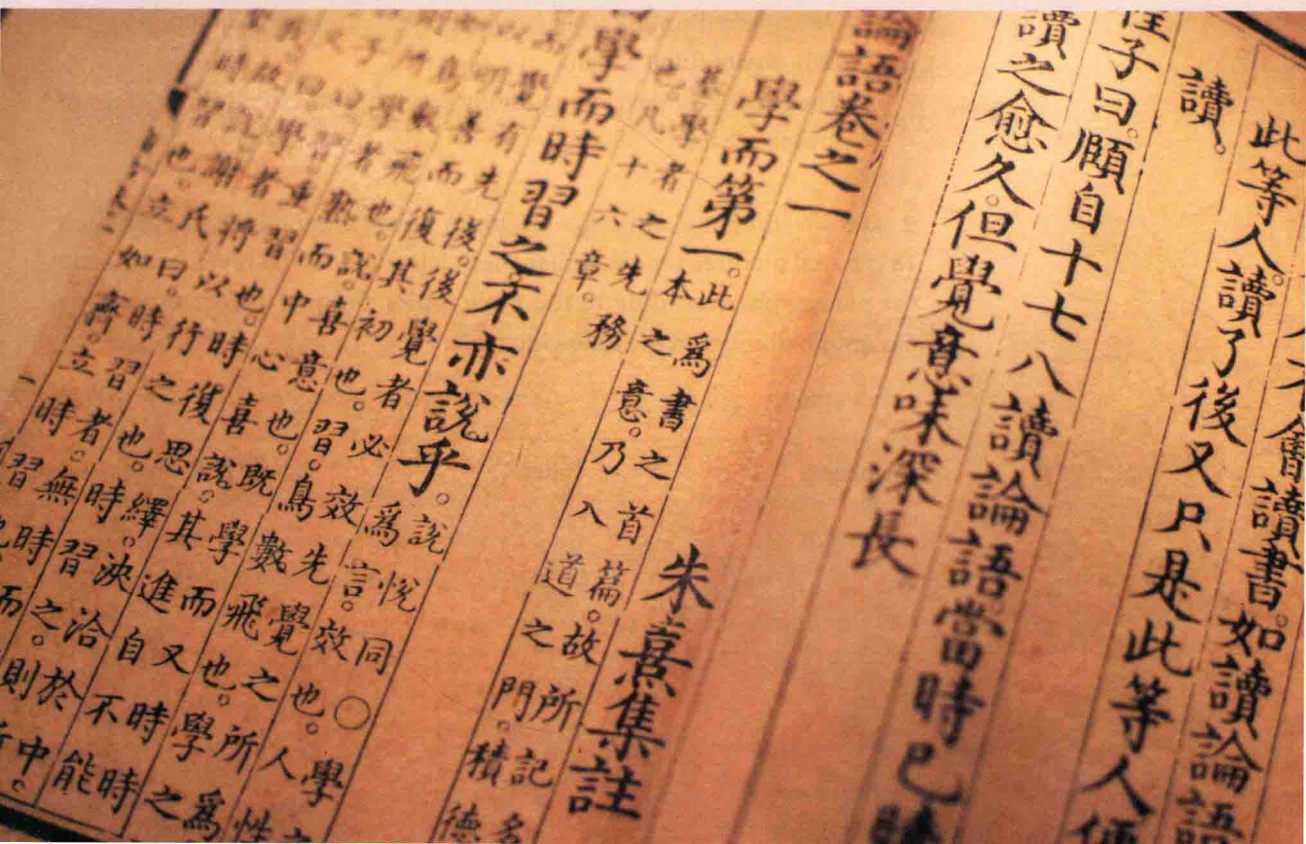 人不會讀書。如讀論語
此等人。讀了後又只是此等人便
讀。
程子曰。頤自十七八讀論語當時已曉
讀之愈久。但覺意味深長
論語卷之一 朱熹集註
學而第一。此爲書之首篇。故所記多務
本之意。乃入道之門。積德
基。學者之先務
也。凡十六章。
學而時習之。不亦說乎。說悅同○學之
爲言。效也。人性
而覺有先後。後覺者必效先覺之所爲
以明善而復其初也。習。鳥數飛也。學之
如鳥數飛也。說。喜意也。既學而又時
所學者熟。而中心喜說。其進自不能
子曰。習。重習也。時復思繹。浹洽於中。則
又曰。學者將以行之也。時習之。則所
我。故說。謝氏曰。時習者。無時而
時習也。立如齊。立時習也